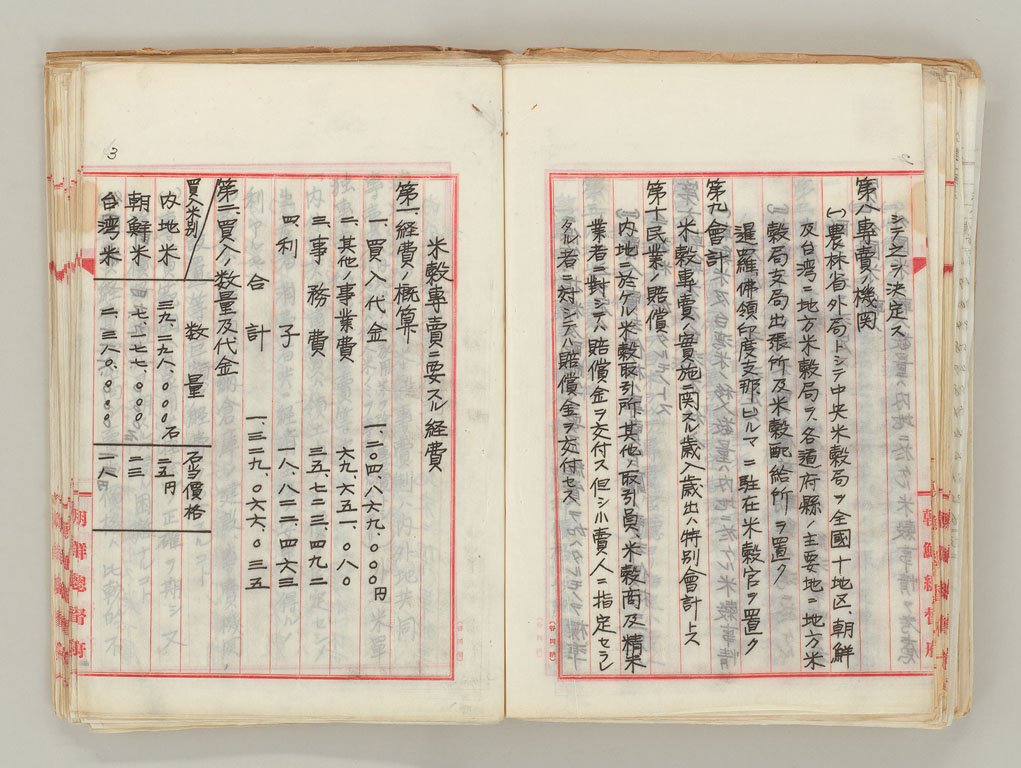 シテ之ヲ決定ス
第八、專賣ノ機関
(一)農林省外局トシテ中央米穀局ヲ全國十地区、朝鮮
及台湾ニ地方米穀局ヲ、各道府縣ノ主要地ニ地方米
穀局支局出張所及米穀配給所ヲ置ク
暹羅、佛領印度支那、ビルマニ駐在米穀官ヲ置ク
第九、會計
米穀專賣ノ實施ニ関スル歳入歳出ハ特別會計トス
第十、民業ノ賠償
内地ニ於ケル米穀取引所、其他ノ取引員、米穀商及精米
業者ニ對シテハ賠償金ヲ交付ス但シ小賣人ニ指定セラレ
タル者ニ対シテハ賠償金ヲ交付セス
2
3
米穀專賣ニ要スル經費
第一、經費ノ概算
一、買入代金 一、二〇四、八六九、〇〇〇円
二、其他ノ事業費 六九、六五一、〇八〇
三、事務費 三五、七二三、四九二
四、利子 一八、八二二、四六三
合計 一、三二九、〇六六、〇三五
第二、買入ノ数量及代金
買入米別 数量 石当價格
内地米 三九、二九八、〇〇〇石 二五円
朝鮮米 七、一七七、〇〇〇 二三
台湾米 二、三八〇、〇〇〇 一八円
朝鮮總督府